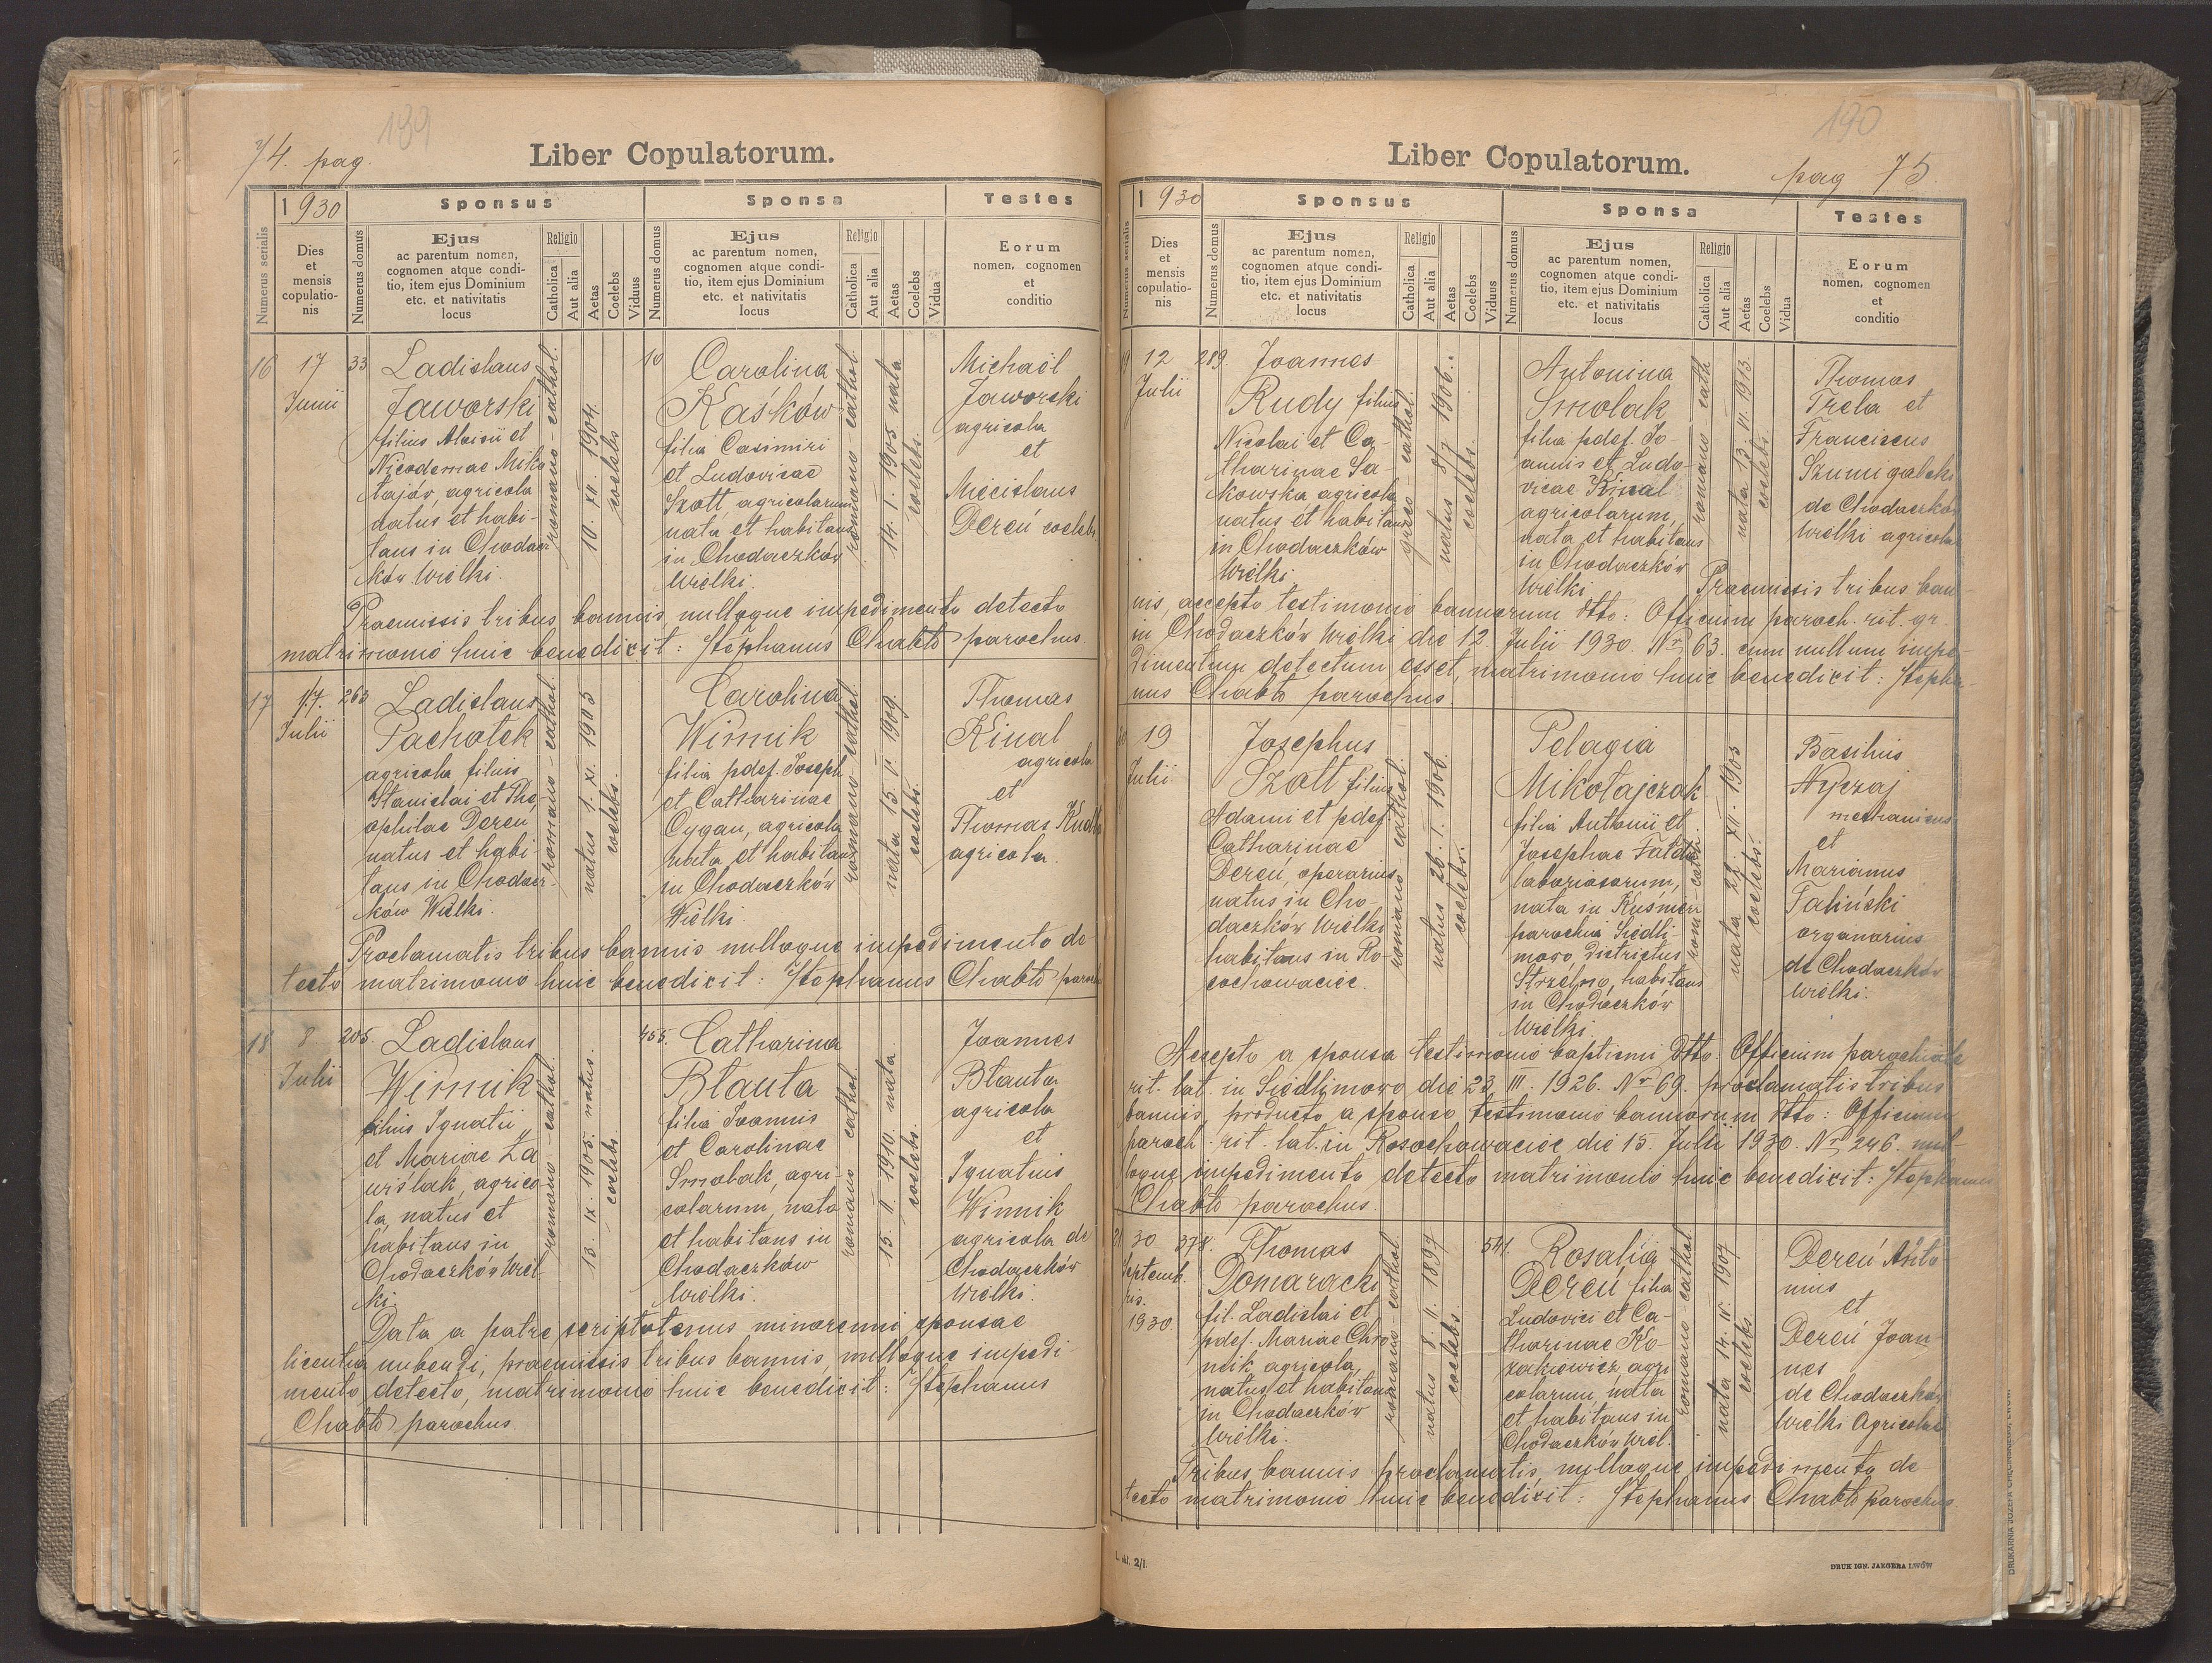 74. pag.
189
Liber Copulatorum.
1930
Sponsus
Sponsa
Testes
Numerus serialis
Dies
et
mensis
copulatio-
nis
Numerus domus
Ejus
ac parentum nomen,
cognomen atque condi-
tio, item ejus Dominium
etc. et nativitatis
locus
Religio
Catholica
Aut alia
Aetas
Coelebs
Viduus
Numerus domus
Ejus
ac parentum nomen,
cognomen atque condi-
tio, item ejus Dominium
etc. et nativitatis
locus
Religio
Catholica
Aut alia
Aetas
Coelebs
Vidua
Eorum
nomen, cognomen
et
conditio
16
17
Junii
33
Ladislaus
Jaworski
filius Aloisii et
Nicodemae Miko
łajów, agricola
natus et habi-
tans in Chodacz
ków Wielki.
romano-cathol.
10. XII. 1904.
coelebs
10
Carolina
Kaśków
filia Casimiri
et Ludovicae
Szott, agricolarum
nata et habitans
in Chodaczków
Wielki.
romano-cathol
14. I. 1905 nata
coelebs.
Michaël
Jaworski
agricola
et
Miecislaus
Dereń coelebs
Praemissis tribus bannis nulloque impedimento detecto
matrimonio huic benedixit: Stephanus Chabło parochus.
17
7.
Julii
263
Ladislaus
Pachołek
agricola filius
Stanislai et The-
ophilae Dereń
natus et habi
tans in Chodacz-
ków Wielki.
romano-cathol.
natus 1. XI. 1905
coelebs.
Carolina
Winnik
filia pdef. Joseph
et Catharinae
Cygan, agricola
nata et habitans
in Chodaczków
Wielki.
romano-cathol.
nata 15. V. 1909.
coelebs.
Thomas
Kinal
agricola
et
Thomas
agricola.
Proclamatis tribus bannis nulloque impedimento de-
tecto matrimonio huic benedixit: Stephanus Chabło paroch
18
8
Julii
205
Ladislaus
Winnik
filius Ignatii
et Mariae Za
wiślak, agrico-
la, natus et
habitans in
Chodaczków Wiel-
ki.
romano-cathol.
13. IX. 1905. natus.
coelebs.
455.
Catharina
Błauta
filia Joannis
et Carolinae
Smolak, agri-
colarum, nata
et habitans in
Chodaczków
Wielki.
romano cathol.
15. II. 1910. nata.
coelebs.
Joannes
Błauta
agricola
et
Ignatius
Winnik
agricola de
Chodaczków
Wielki.
Data a patre scriptotenus minorenni sponsae
licentia nubendi, praemissis tribus bannis, nulloque impedi-
mento detecto, matrimonio huic benedixit: Stephanus
Chabło parochus.
190
Liber Copulatorum.
pag 75.
1930
Sponsus
Sponsa
Testes
Numerus serialis
Dies
et
mensis
copulatio-
nis
Numerus domus
Ejus
ac parentum nomen,
cognomen atque condi-
tio, item ejus Dominium
etc. et nativitatis
locus
Religio
Catholica
Aut alia
Aetas
Coelebs
Viduus
Numerus domus
Ejus
ac parentum nomen,
cognomen atque condi-
tio, item ejus Dominium
etc. et nativitatis
locus
Religio
Catholica
Aut alia
Aetas
Coelebs
Vidua
Eorum
nomen, cognomen
et
conditio
19
12
Julii
289.
Joannes
Rudy filius
Nicolai et Ca-
tharinae Sa-
kowska agricola
natus et habitans
in Chodaczków
Wielki.
greco-cathol.
natus 8/7 1906.
coelebs.
Antonina
Smolak
filia pdef. Jo-
annis et Ludo-
vicae Kinal
agricolarum,
nata et habitans
in Chodaczków
Wielki.
romano-cath
nata 13. VI. 1913.
coelebs.
Thomas
Trela et
Franciscus
Szumigalski
de Chodaczków
Wielki agricola
Praemissis tribus ban-
nis, accepto testimonio bannorum dtto: Officium paroch. rit. gr.
in Chodaczków Wielki die 12. Julii 1930. Nr 63. cum nullum impe-
dimentum detectum esset, matrimonio huic benedixit: Stepha-
nus Chabło parochus.
20
19
Julii
Josephus
Szott filius
Adami et pdef
Catharinae
Dereń, operarius
natus in Cho-
daczków Wielki
habitans in Ro-
sochowaciec.
romano cathol.
natus 26. I. 1906.
coelebs.
Pelagia
Mikołajczak
filia Antonii et
Josephae
laboriosorum,
nata in
parochia Siedli-
mowo, districtus
Strzelno, habitans
in Chodaczków
Wielki.
rom-cath.
coelebs.
Basilius
Nyczaj
mechanicus
et
Marianus
Taliński
organarius
de Chodaczków
Wielki.
Accepto a sponsa testimonio baptismi dtto. Officium parochiale
rit. lat. in Siedlimowo die 23. III. 1926. Nr 69. proclamatis tribus
bannis, producto a sponso testimonio bannorum dtto: Officium
paroch. rit. lat. in Rosochowaciec die 15. Julii 1930. Nr 246. nul-
loque impedimento detecto matrimonio huic benedixit: Stephanus
Chabło parochus.
21
30
Septemb
ris.
1930.
378.
Thomas
Domaracki
fil. Ladislai et
pdef. Mariae Chro
nik, agricola,
natus et habitans
in Chodaczków
Wielki.
romano-cathol.
natus 8. II. 1897
coelebs.
541.
Rosalia
Dereń filia
Ludovici et Ca-
tharinae Ko-
zakiewicz, agri
colarum, nata
et habitans in
Chodaczków Wiel.
romano-cathol.
nata 14. IV. 1907
coelebs
Dereń Anto
nius
et
Dereń Joan-
nes
de Chodaczków
Wielki Agricolae
Tribus bannis proclamatis, nulloque impedimento de-
tecto matrimonio huic benedixit: Stephanus Chabło Parochus.
2/I.
DRUK IGN. JAEGERA LWÓW